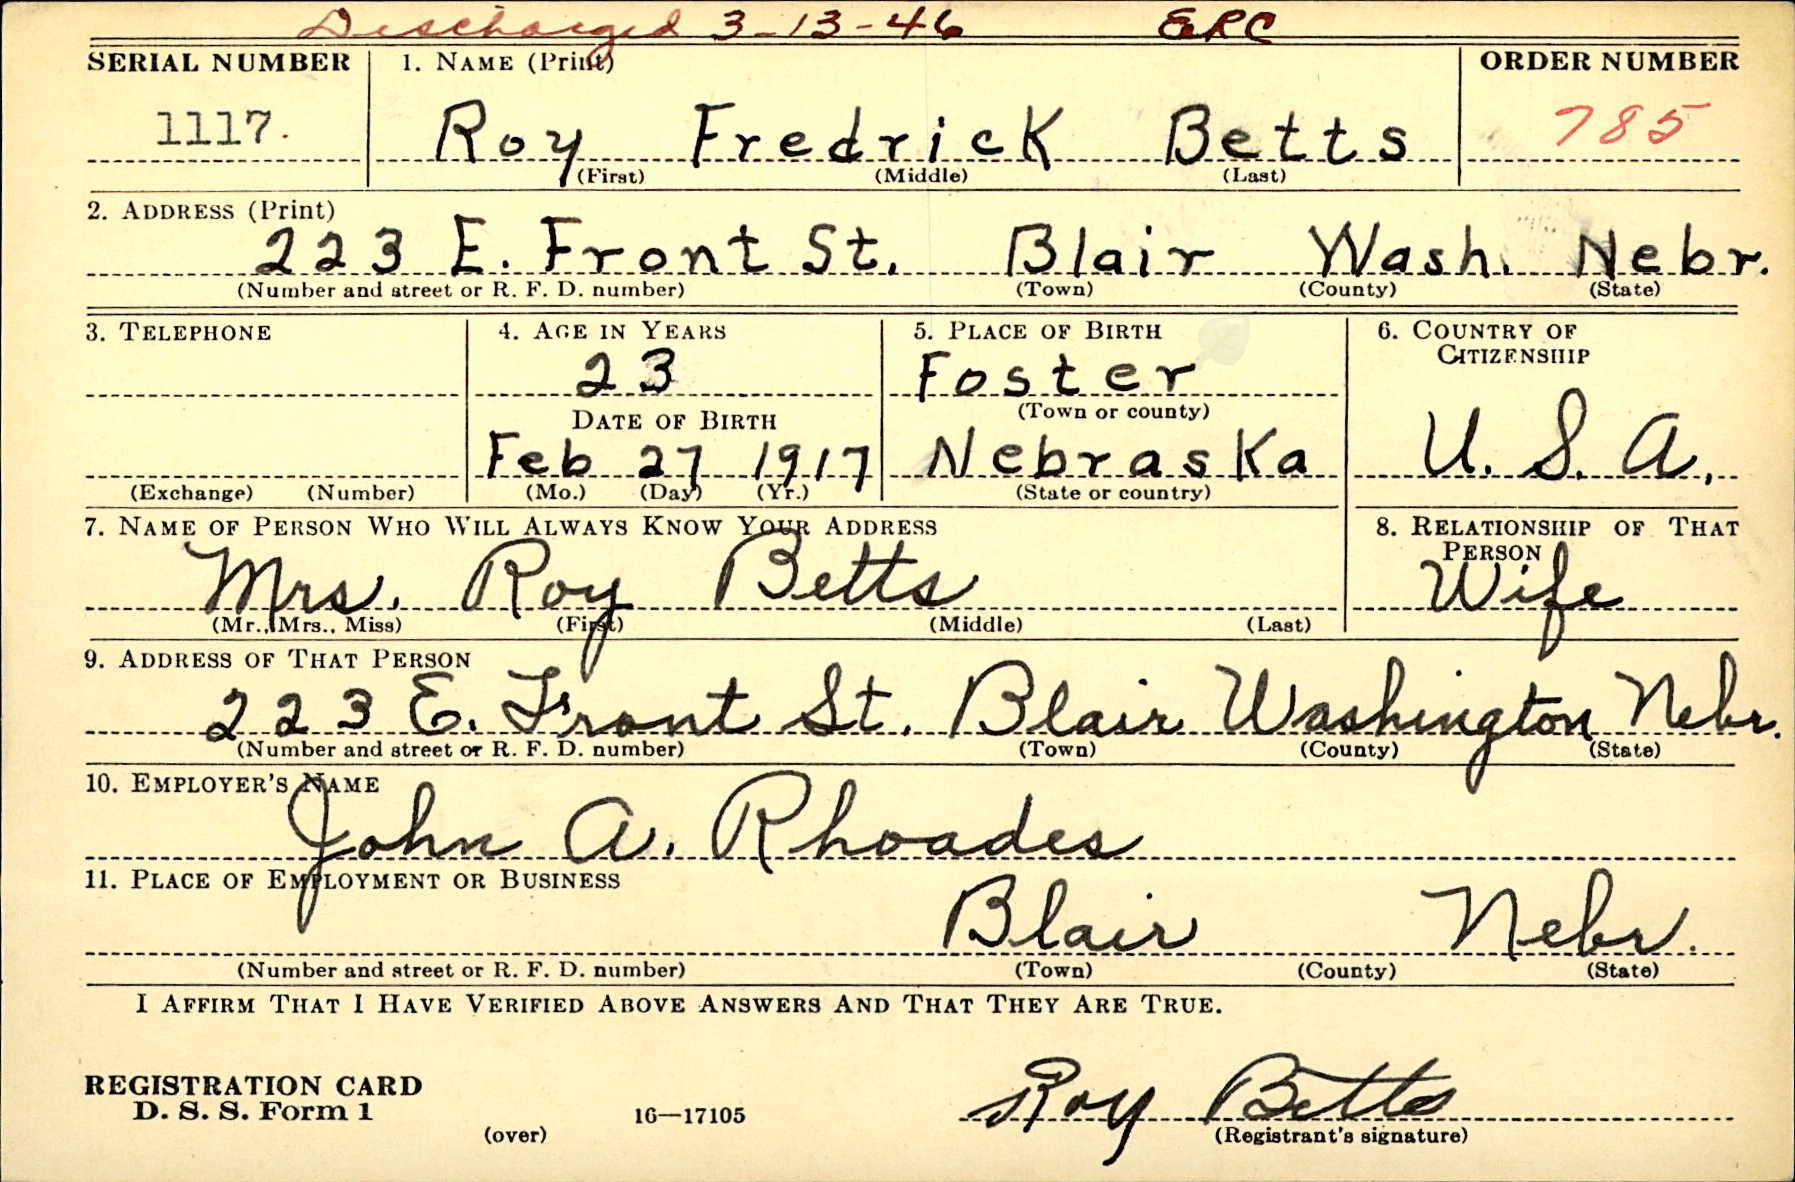 Discharged 3-13-46 ERC
SERIAL NUMBER 1. NAME (Print) ORDER NUMBER
1117. Roy Fredrick Betts 785
(First) (Middle) (Last)
2. ADDRESS (Print)
223 E. Front St. Blair Wash. Nebr.
(Number and street or R. F. D. number) (Town) (County) (State)
3. TELEPHONE 4. AGE IN YEARS 5. PLACE OF BIRTH 6. COUNTRY OF CITIZENSHIP
23 Foster
DATE OF BIRTH (Town or county)
Feb 27 1917 Nebraska U. S. A.
(Exchange) (Number) (Mo.) (Day) (Yr.) (State or country)
7. NAME OF PERSON WHO WILL ALWAYS KNOW YOUR ADDRESS 8. RELATIONSHIP OF THAT PERSON
Mrs. Roy Betts Wife
(Mr., Mrs., Miss) (First) (Middle) (Last)
9. ADDRESS OF THAT PERSON
223 E. Front St. Blair Washington Nebr.
(Number and street or R. F. D. number) (Town) (County) (State)
10. EMPLOYER'S NAME
John A. Rhoades
11. PLACE OF EMPLOYMENT OR BUSINESS
Blair Nebr.
(Number and street or R. F. D. number) (Town) (County) (State)
I AFFIRM THAT I HAVE VERIFIED ABOVE ANSWERS AND THAT THEY ARE TRUE.
REGISTRATION CARD
D. S. S. Form 1 16—17105 Roy Betts
(over) (Registrant's signature)